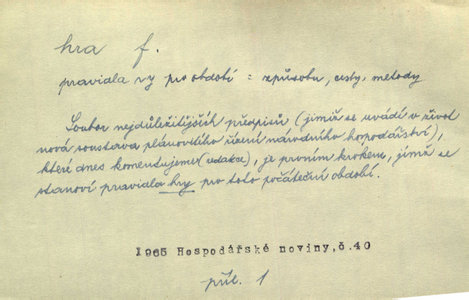 hra f.
pravidla hry pro období = způsoby, cesty, metody
Soubor nejdůležitějších předpisů (jimiž se uvádí v život
nová soustava plánovitého řízení národního hospodářství),
které dnes komentujeme (redakce), je prvním krokem, jímž se
stanoví pravidla hry pro toto počáteční období.
1965 Hospodářské noviny, č.40
příl. 1